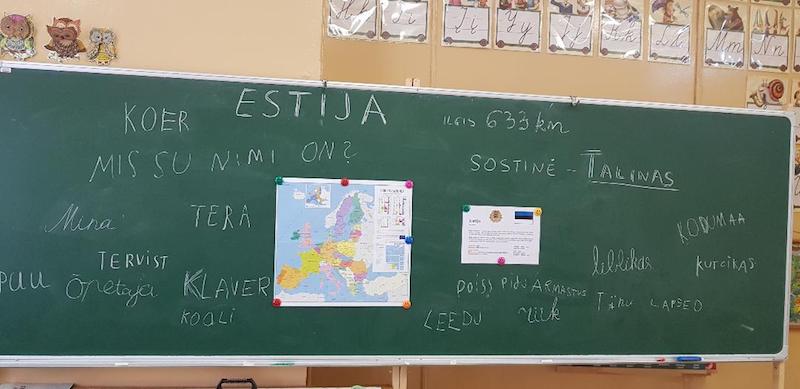 ESTIJA
KOER
ILGIS 633 km
MIS SU NIMI ON?
SOSTINĖ - TALINAS
Mina
TERA
KODUMAA
TERVIST
liblikas
kurcikas
PUU
Õpetaja
KLAVER
poiss
Pidu
ARMASTUS
Tänu
LAPSED
KOOLI
LEEDU
riik
Yy
Mm
Nn